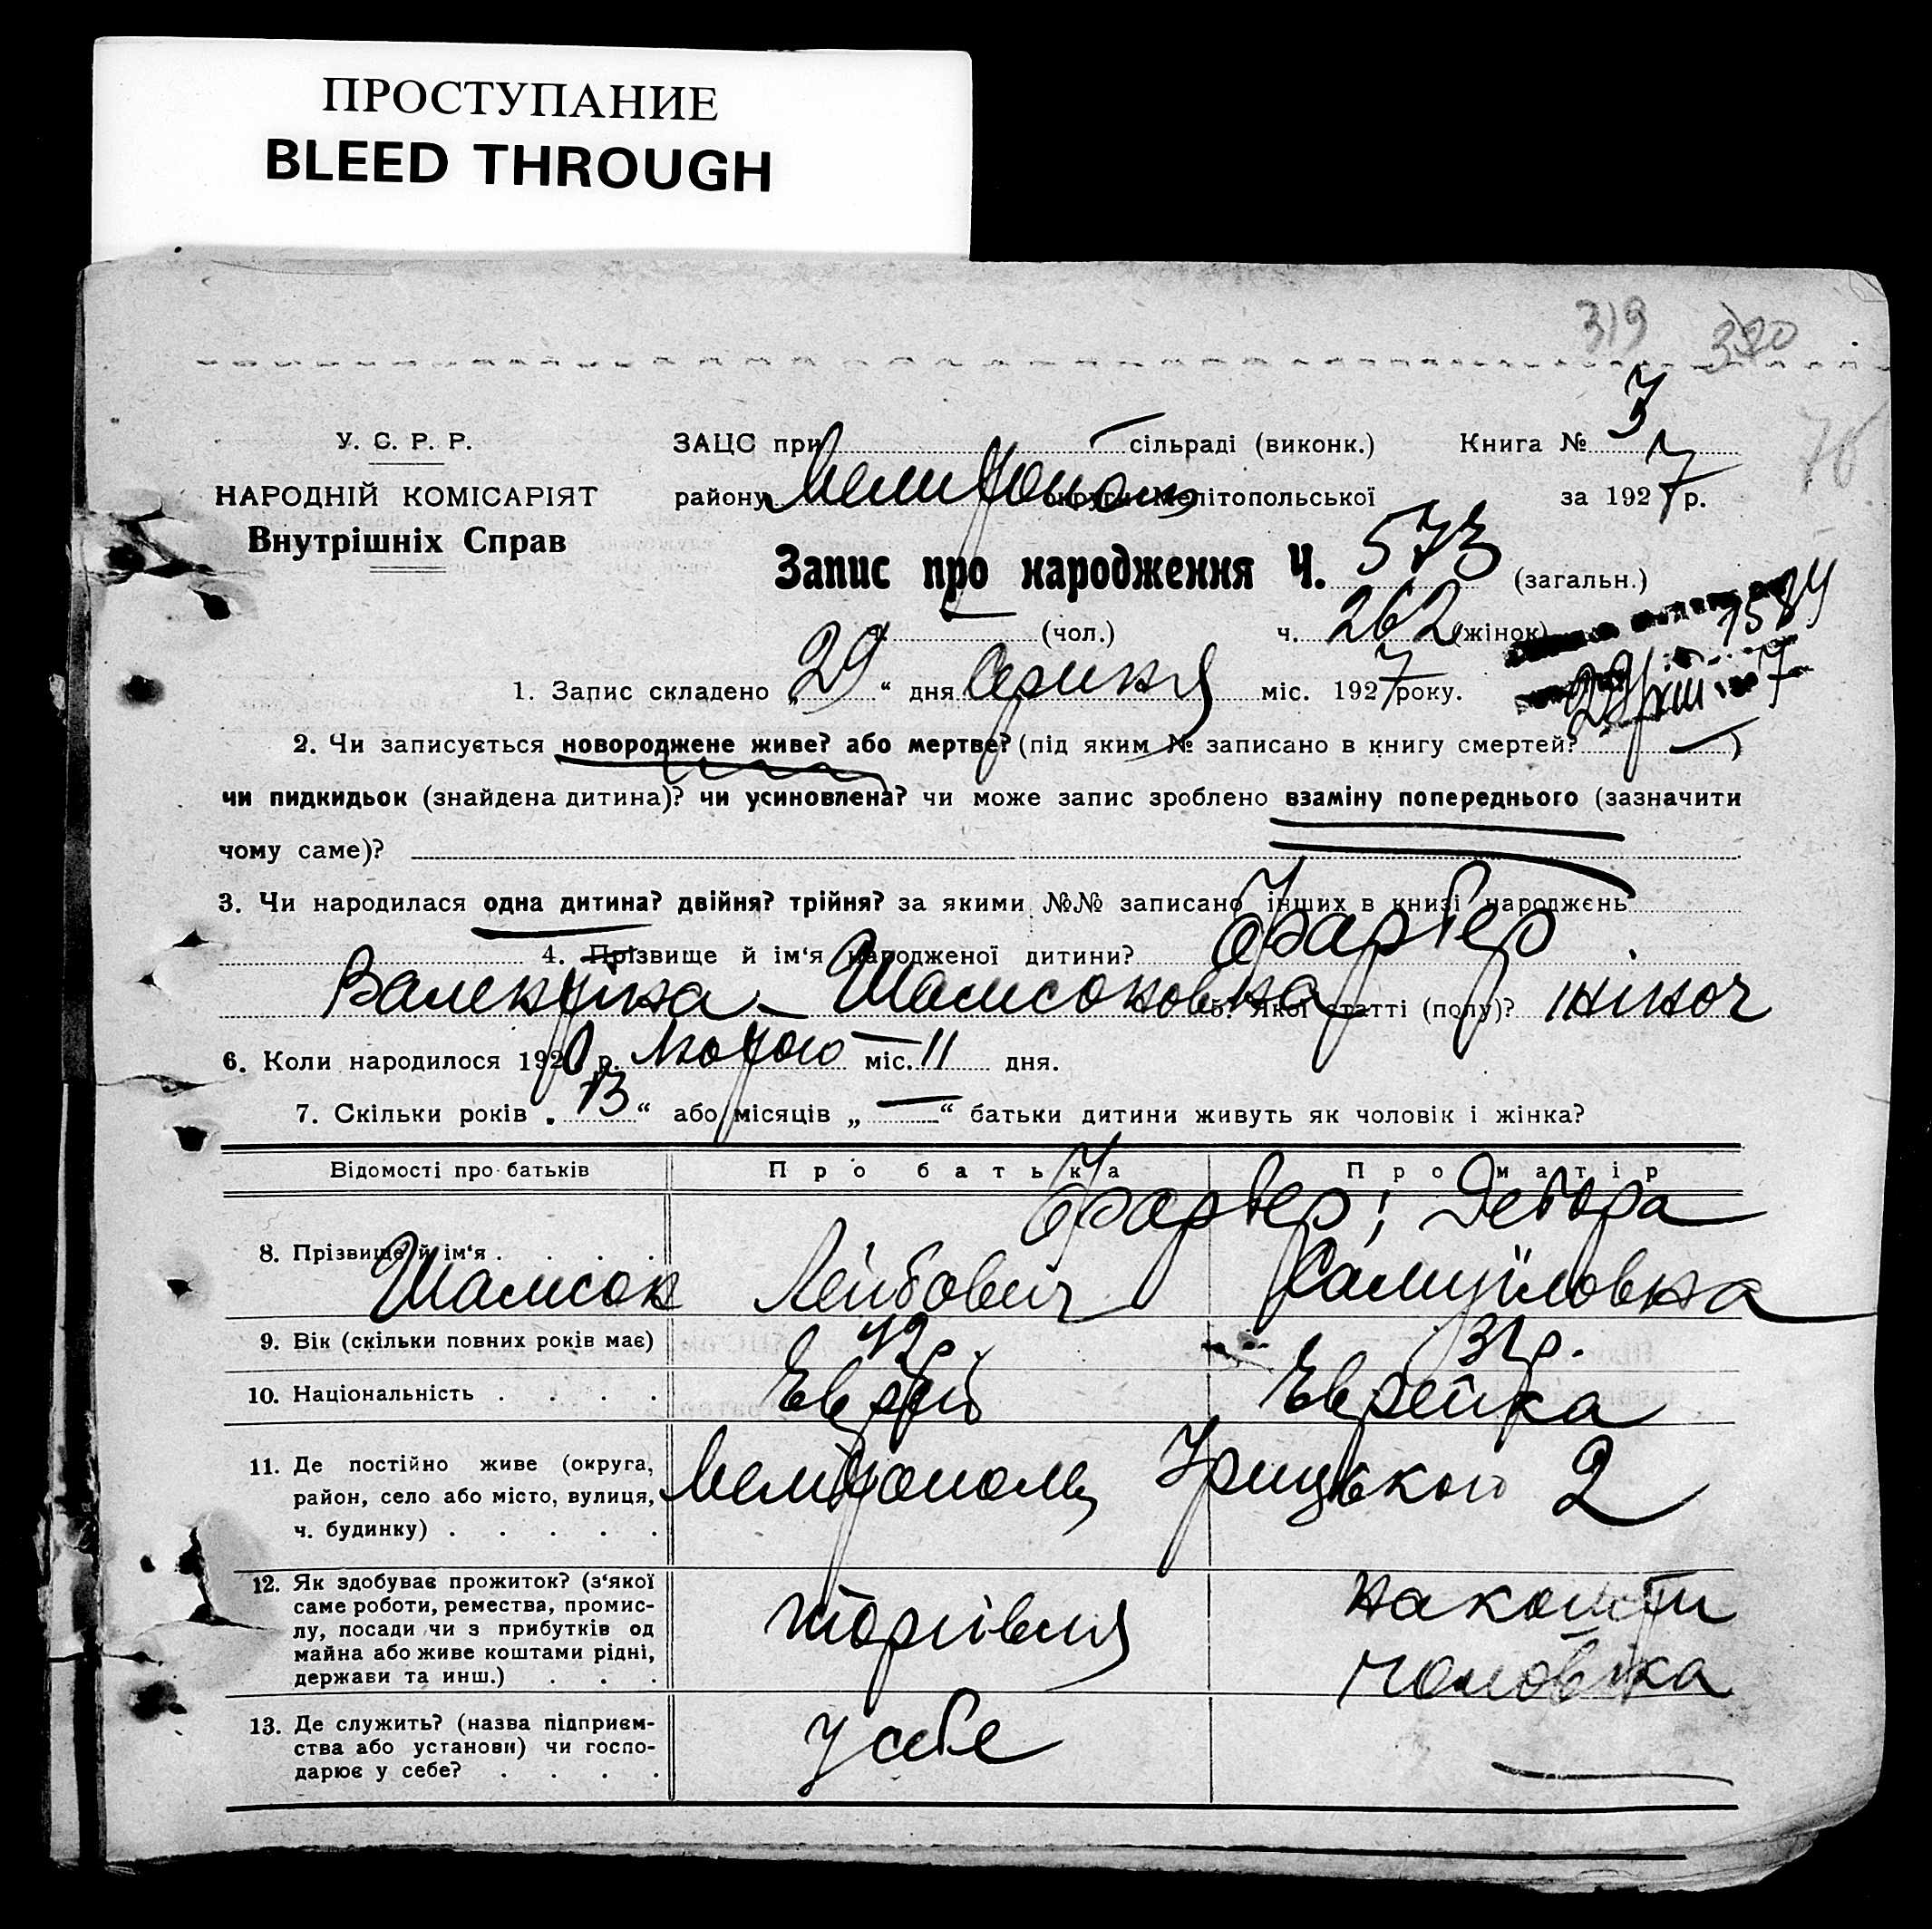 ПРОСТУПАНИЕ
BLEED THROUGH
319 320
76
У. С. Р. Р.
НАРОДНІЙ КОМІСАРІЯТ
Внутрішніх Справ
ЗАЦС при сільраді (виконк.) Книга № 3
району Мелитополь округи Мелітопольської за 1927 р.
Запис про народження Ч. 573 (загальн.)
ч. — (чол.) ч. 262 (жінок)
1. Запис складено „29“ дня Серпня міс. 1927 року.
2. Чи записується новороджене живе? або мертве? (під яким № записано в книгу смертей? — )
чи пидкидьок (знайдена дитина)? чи усиновлена? чи може запис зроблено взаміну попереднього (зазначити
чому саме)?
3. Чи народилася одна дитина? двійня? трійня? за якими №№ записано інших в книзі народжень
4. Прізвище й ім‘я народженої дитини? Фарбер
Валентина Шамсоновна 5. Якої статті (полу)? жіноч
6. Коли народилося 192 р. Лютого міс. 11 дня.
7. Скільки років „13“ або місяців „—“ батьки дитини живуть як чоловік і жінка?
Відомості про батьків Про батька Про матір
8. Прізвище й ім‘я . . . . Фарбер; Дебора
Шамсон Лейбович Самуйловна
9. Вік (скільки повних років має) 42 р. 31 р.
10. Національність . . . . Еврей Еврейка
11. Де постійно живе (округа,
район, село або місто, вулиця,
ч. будинку) . . . . . Мелитополь Урицького 2
12. Як здобуває прожиток? (з‘якої
саме роботи, ремества, промис-
лу, посади чи з прибутків од
майна або живе коштами рідні,
держави та инш.) . . . торгівля на кошти
чоловіка
13. Де служить? (назва підприєм-
ства або установи) чи госпо-
дарює у себе? . . . . у себе —